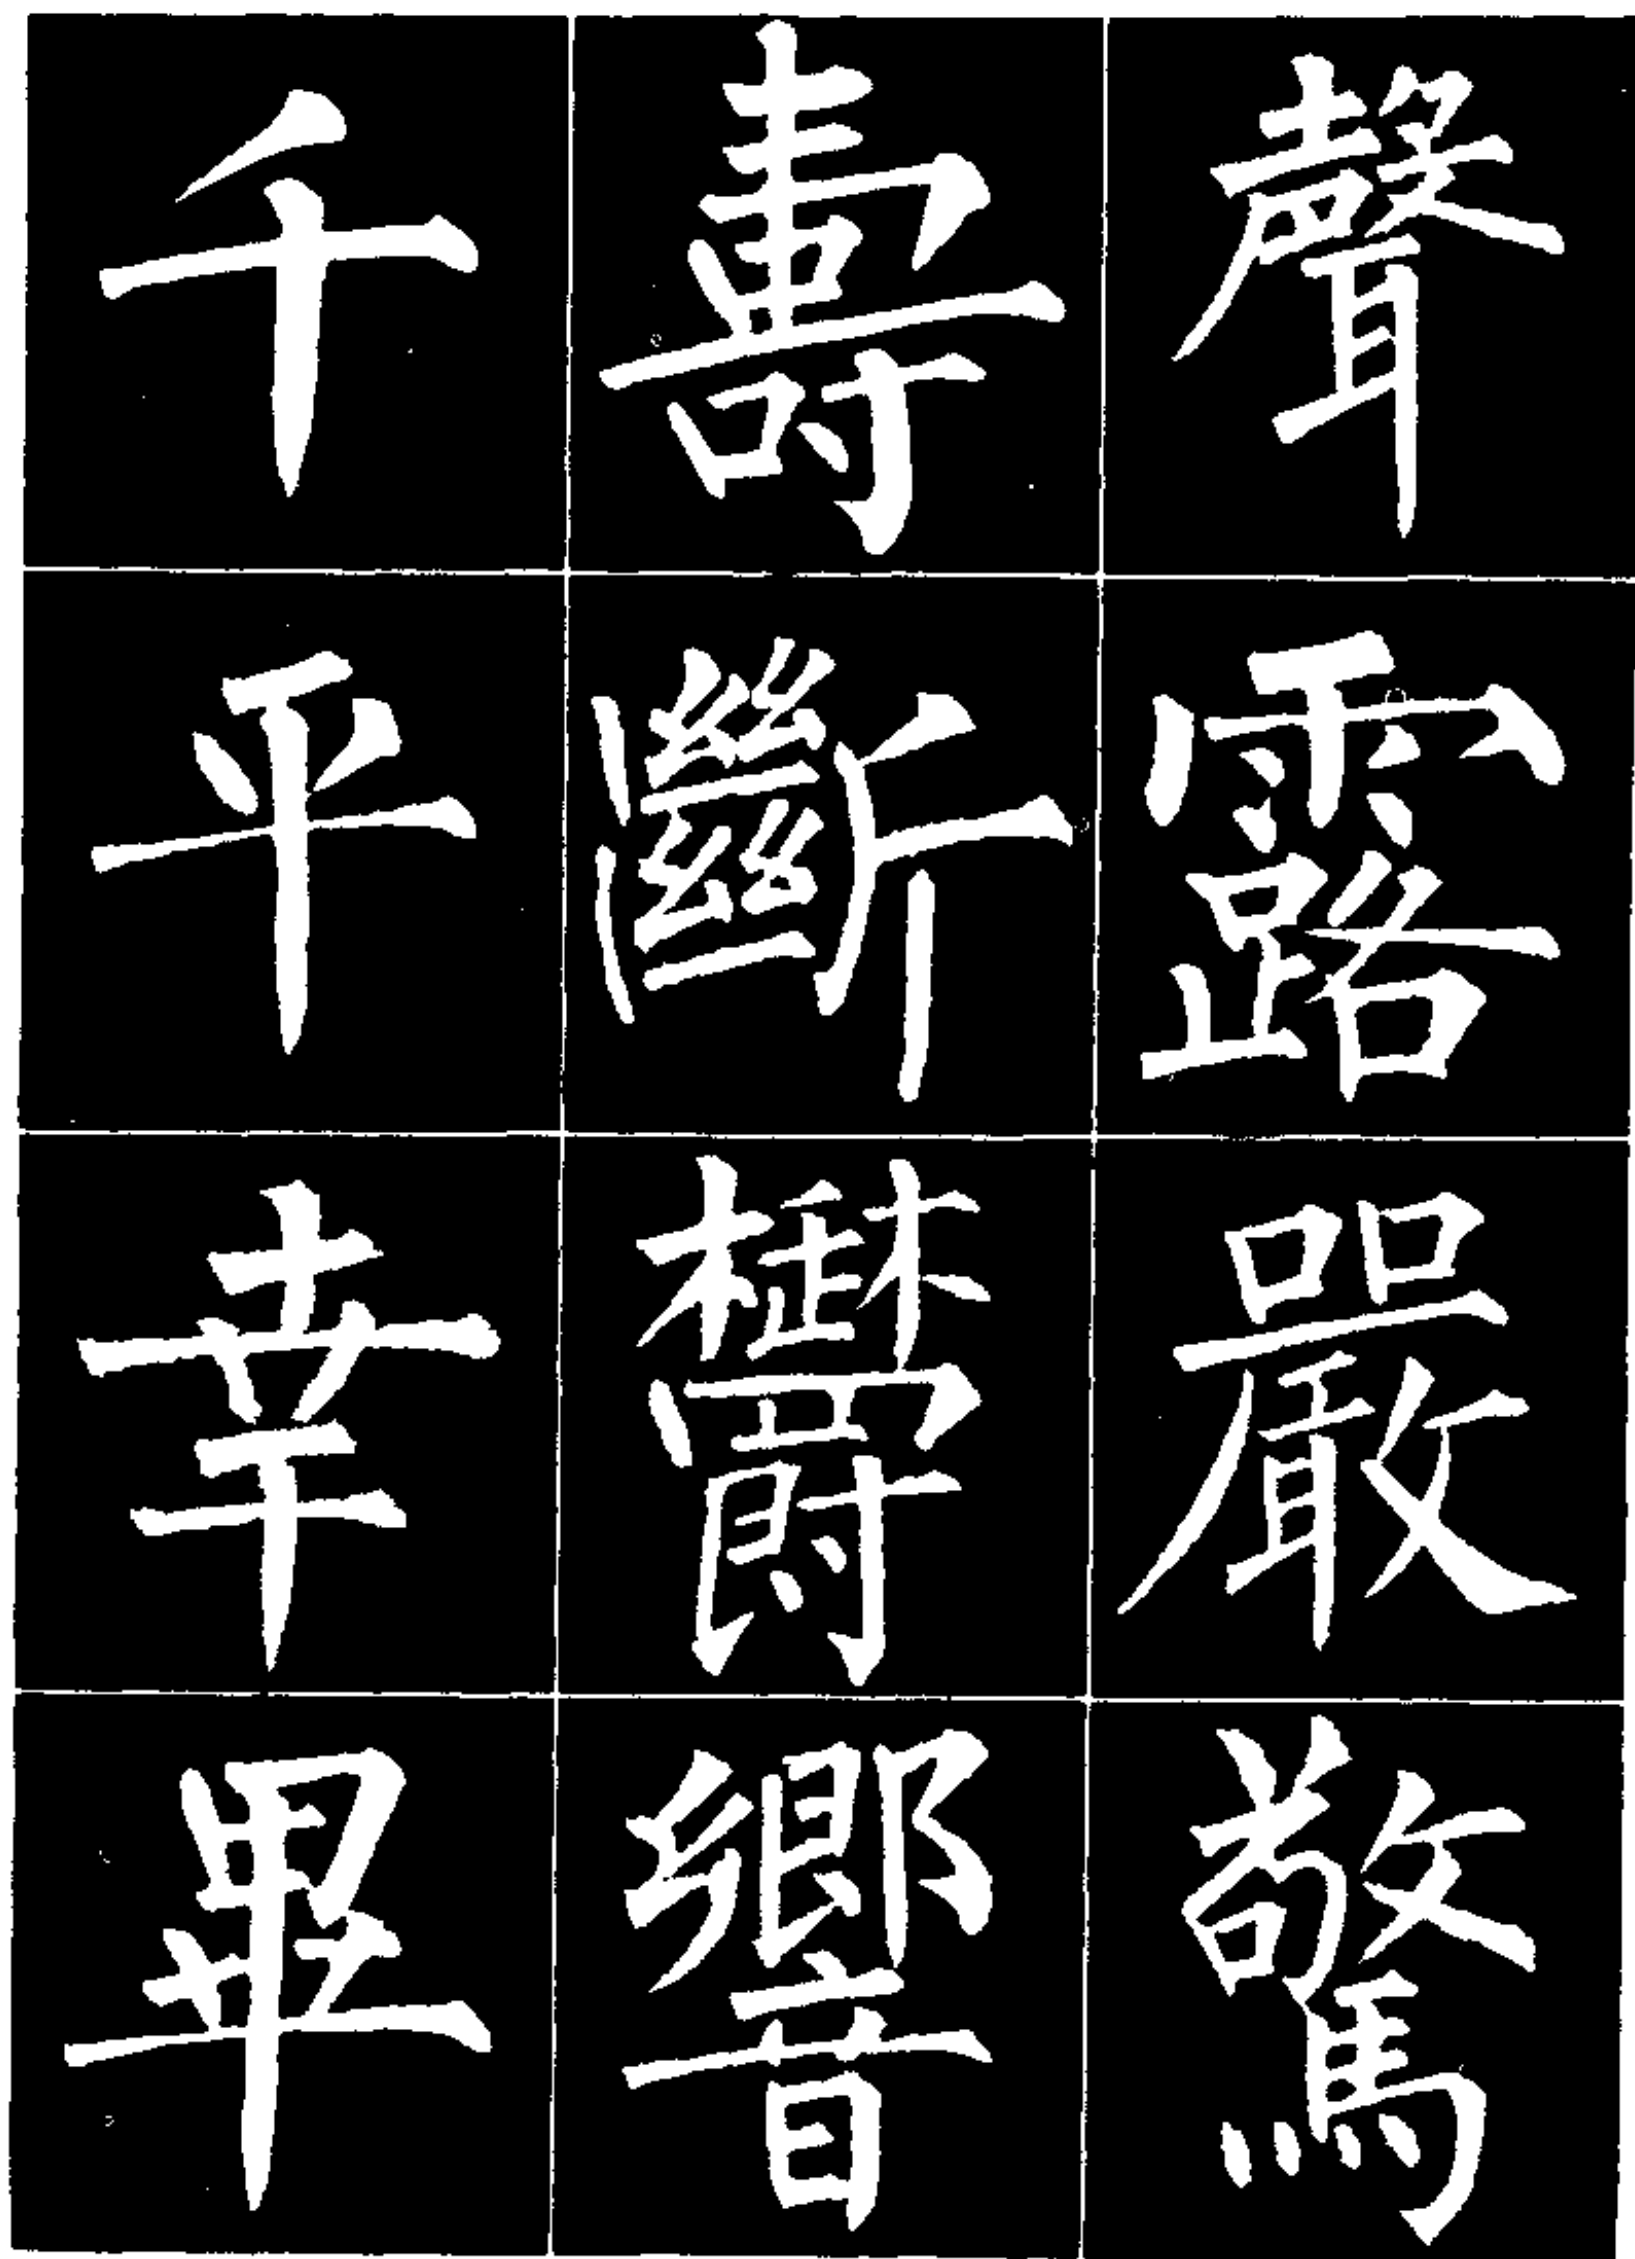 聲露嚴驚
壽斷鬱響
千平幸畢